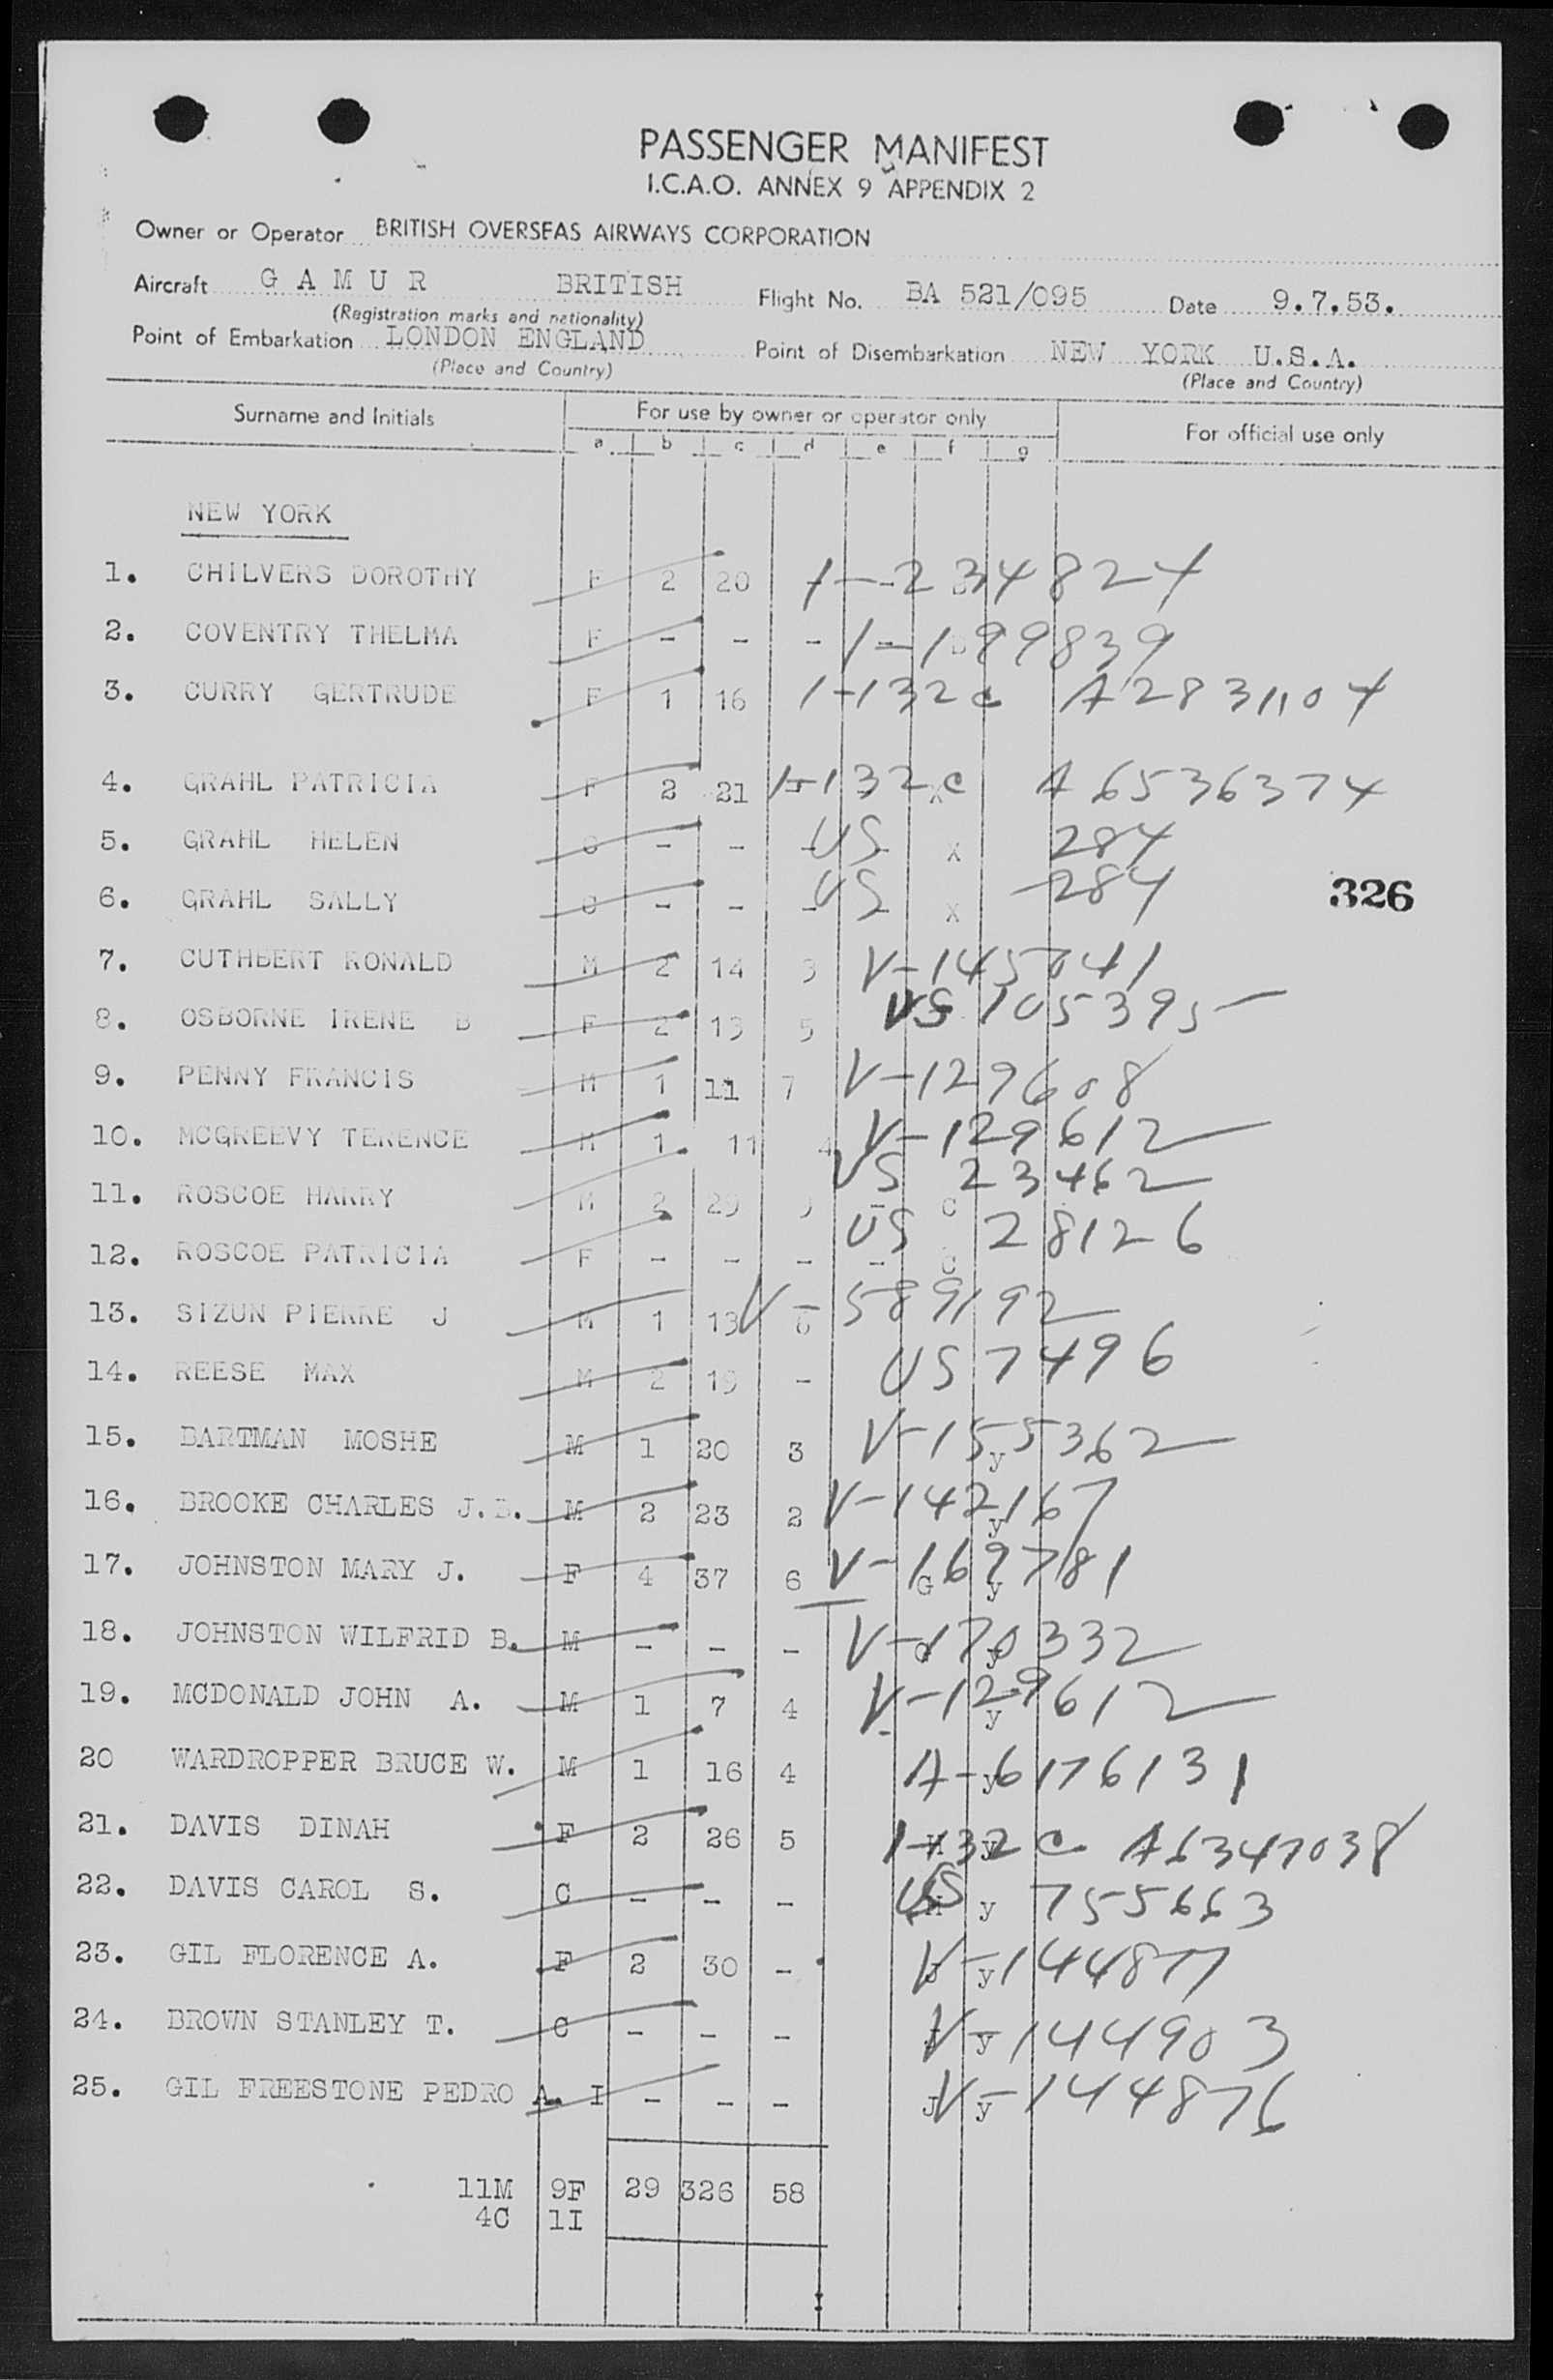 PASSENGER MANIFEST
I.C.A.O. ANNEX 9 APPENDIX 2
Owner or Operator BRITISH OVERSEAS AIRWAYS CORPORATION
Aircraft G A M U R BRITISH Flight No. BA 521/095 Date 9.7.53.
(Registration marks and nationality)
Point of Embarkation LONDON ENGLAND Point of Disembarkation NEW YORK U.S.A.
(Place and Country) (Place and Country)
Surname and Initials For use by owner or operator only For official use only
a b c d e f g
NEW YORK
1. CHILVERS DOROTHY F 2 20 1--234824
2. COVENTRY THELMA F - - - 1-199839
3. CURRY GERTRUDE F 1 16 1-132c A2831104
4. GRAHL PATRICIA F 2 21 1-132c X A6536374
5. GRAHL HELEN C - - - US X 284
6. GRAHL SALLY C - - - US X 284
326
7. CUTHBERT RONALD M 2 14 3 V-145041
8. OSBORNE IRENE B F 2 13 5 US 105395
9. PENNY FRANCIS M 1 11 7 V-129608
10. MCGREEVY TERENCE M 1 11 4 V-129612
11. ROSCOE HARRY M 2 29 - C US 23462
12. ROSCOE PATRICIA F - - - - C US 28126
13. SIZUN PIERRE J M 1 13 6 V-589192
14. REESE MAX M 2 19 - US 7496
15. BARTMAN MOSHE M 1 20 3 y V-155362
16. BROOKE CHARLES J.B. M 2 23 2 y V-142167
17. JOHNSTON MARY J. F 4 37 6 G y V-169781
18. JOHNSTON WILFRID B. M - - - G y V-170332
19. MCDONALD JOHN A. M 1 7 4 y V-129612
20 WARDROPPER BRUCE W. M 1 16 4 y A-6176131
21. DAVIS DINAH F 2 26 5 H y 1-132c A6347038
22. DAVIS CAROL S. C - - - H y US 755663
23. GIL FLORENCE A. F 2 30 - J y V-144877
24. BROWN STANLEY T. C - - - J y V-144903
25. GIL FREESTONE PEDRO A. I - - - J y V-144876
11M 9F 29 326 58
4C 1I